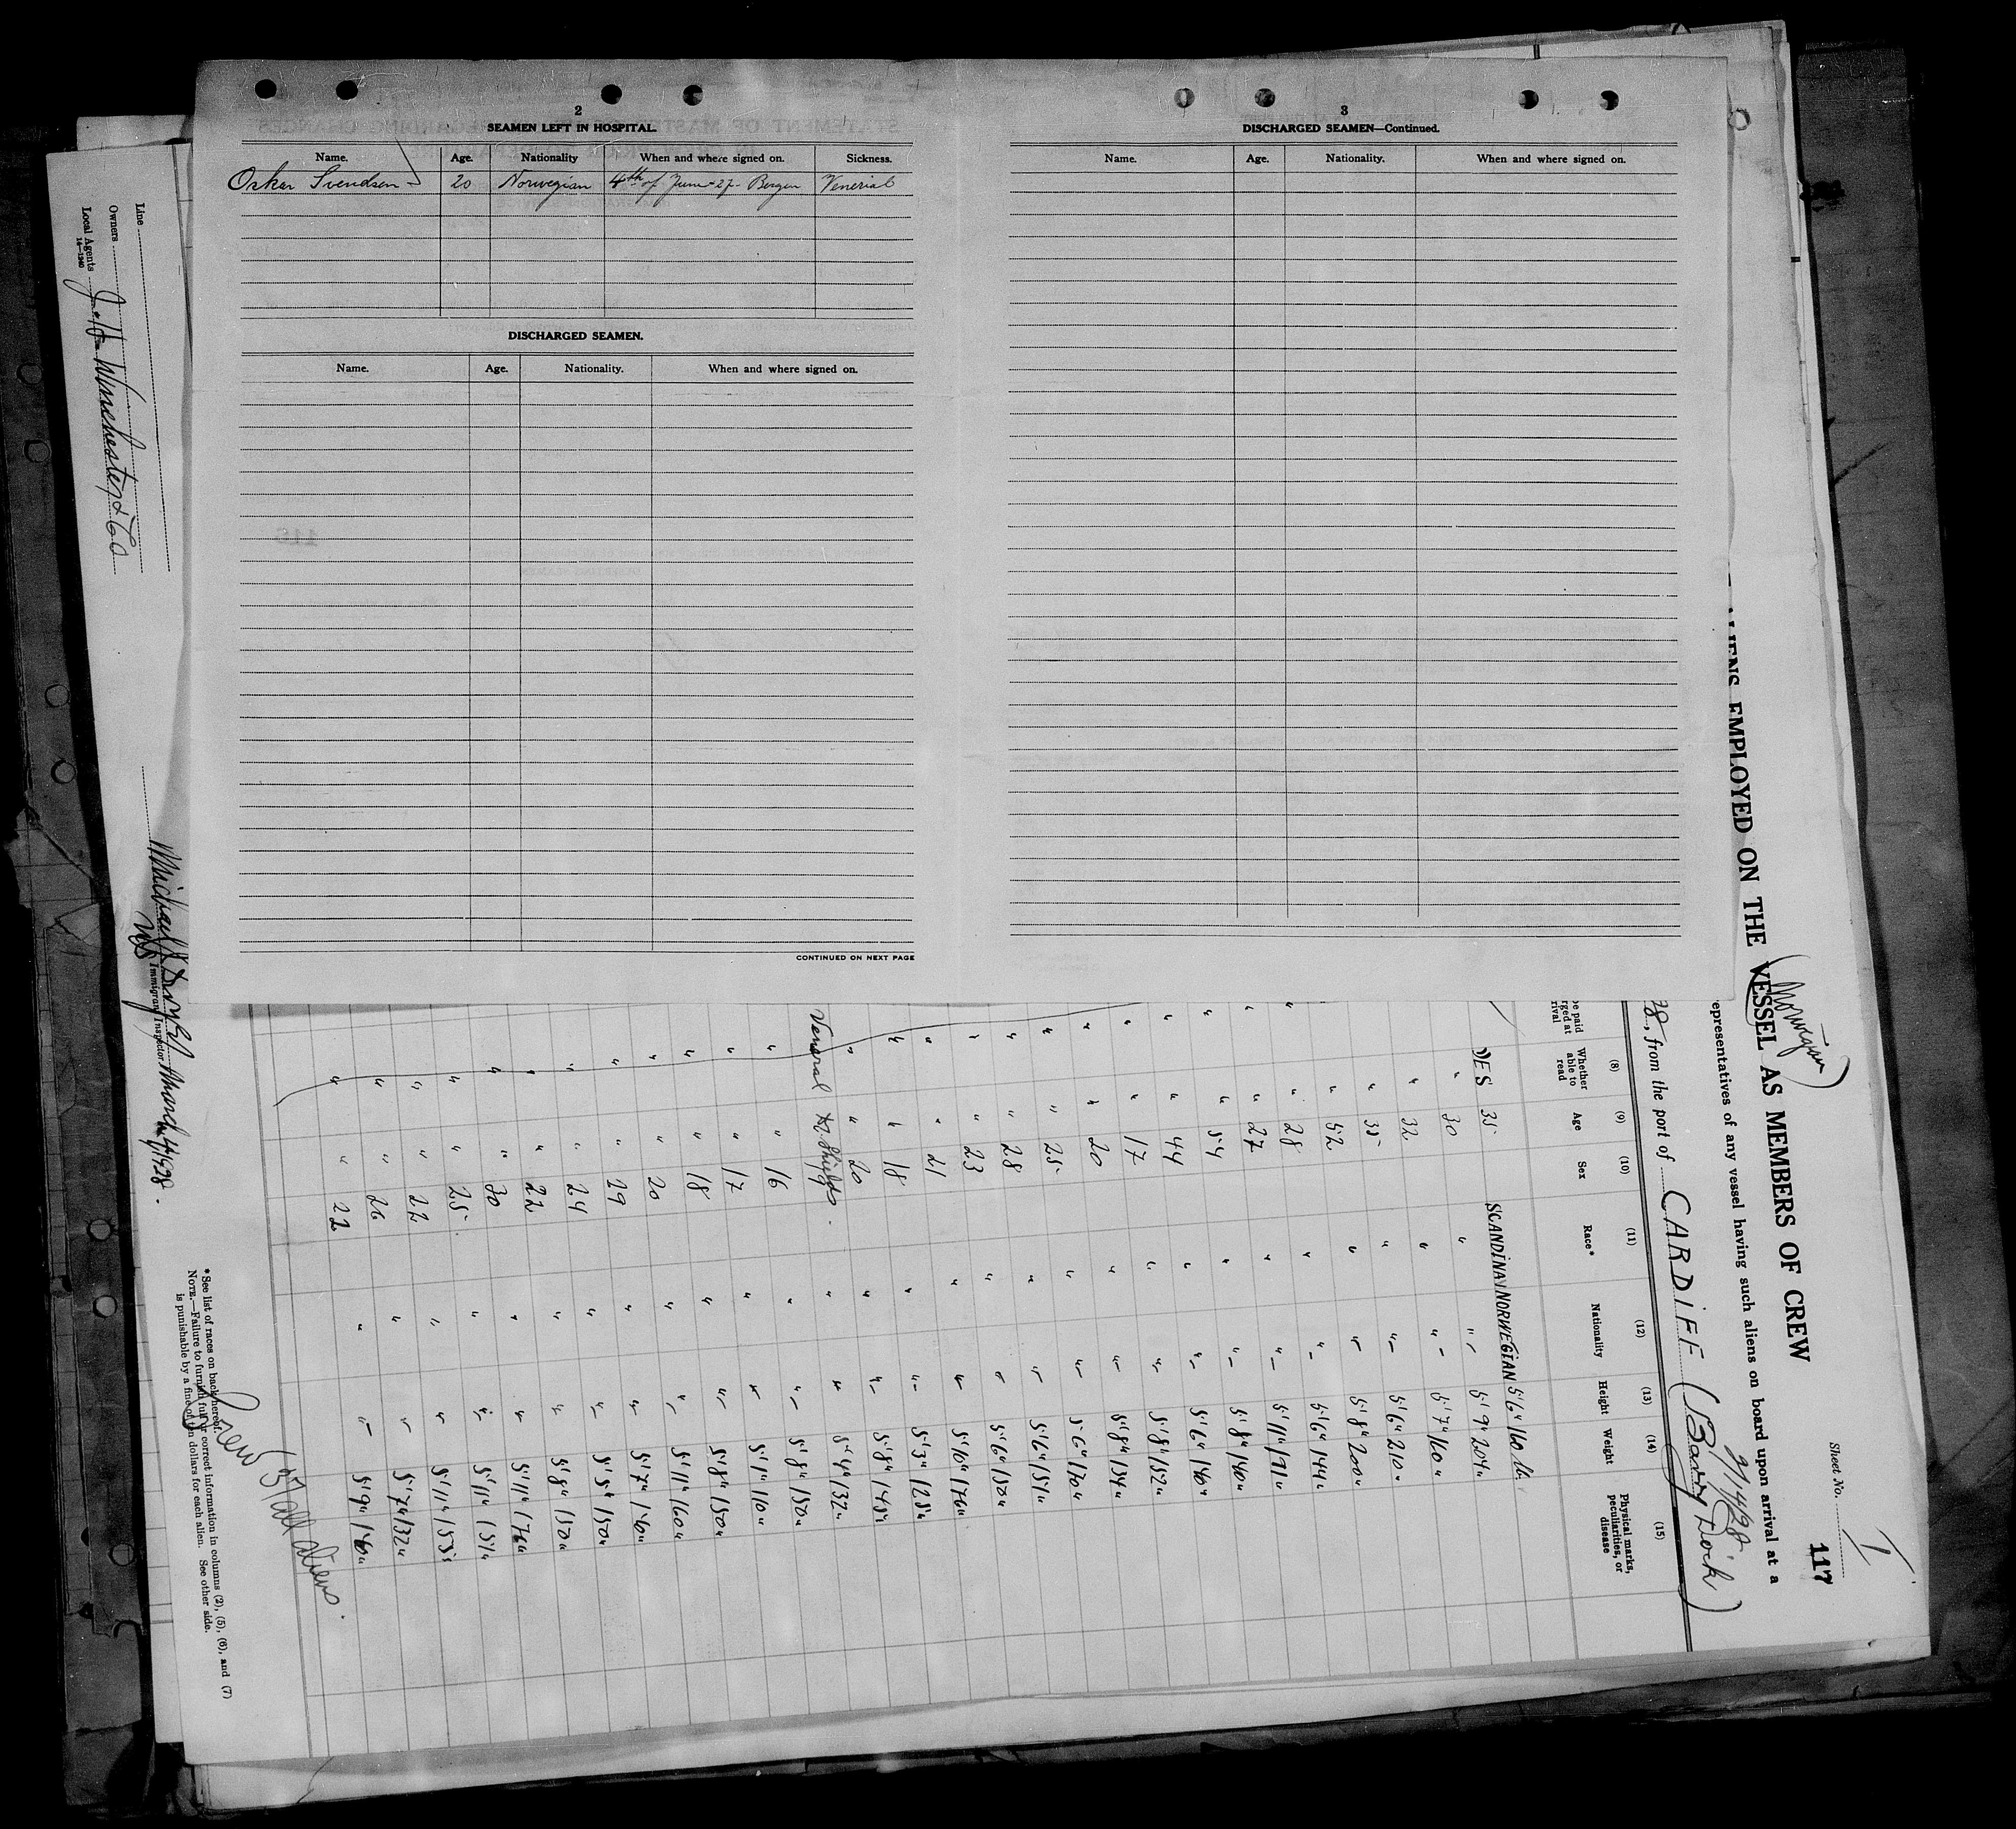 2
SEAMEN LEFT IN HOSPITAL.
Name. Age. Nationality When and where signed on. Sickness.
Oskar Svendsen 20 Norwegian 4th of June-27- Bergen Venerial
DISCHARGED SEAMEN.
Name. Age. Nationality. When and where signed on.
CONTINUED ON NEXT PAGE
3
DISCHARGED SEAMEN—Continued.
Name. Age. Nationality. When and where signed on.
Sheet No. 1
117
ALIENS EMPLOYED ON THE VESSEL AS MEMBERS OF CREW
(Norwegian)
epresentatives of any vessel having such aliens on board upon arrival at a
28, from the port of CARDIFF (Barry Dock)
(8) (9) (10) (11) (12) (13) (14) (15)
Whether able to read Age Sex Race* Nationality Height Weight Physical marks, peculiarities, or disease
YES 35 SCANDINAV NORWEGIAN 5'6" 160 lb.
" 30 " " 5'9" 204 "
" 32 " " 5'7" 160 "
" 35 " " 5'6" 210 "
" 52 " " 5'8" 200 "
" 28 " " 5'6" 144 "
" 27 " " 5'11" 191 "
" 54 " " 5'8" 140 "
" 44 " " 5'6" 140 "
" 17 " " 5'8" 152 "
" 20 " " 5'8" 154 "
" 25 " " 5'6" 170 "
" 28 " " 5'6" 151 "
" 23 " " 5'6" 150 "
" 21 " " 5'10" 176 "
" 18 " " 5'3" 125 "
" 20 " " 5'8" 145 "
Veneral 5'4" 132 "
" 16 " " 5'8" 150 "
" 17 " " 5'1" 110 "
" 18 " " 5'8" 150 "
" 20 " " 5'11" 160 "
" 29 " " 5'7" 140 "
" 24 " " 5'5" 150 "
" 22 " " 5'8" 150 "
" 30 " " 5'11" 176 "
" 25 " " 5'11" 151 "
" 22 " " 5'11" 155 "
" 26 " " 5'7" 132 "
" 22 " " 5'9" 140 "
Crew 35 all aliens.
*See list of races on back hereof.
NOTE.—Failure to furnish full or correct information in columns (2), (5), (6), and (7)
is punishable by a fine of ten dollars for each alien. See other side.
Immigrant Inspector
Line
Owners
Local Agents J. H. Winchester & Co
14—1240